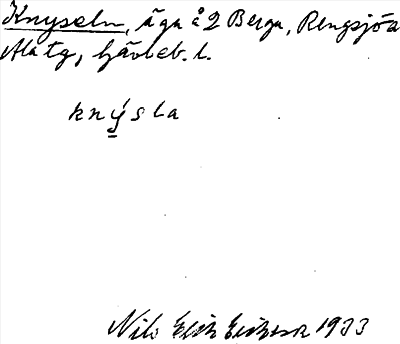 Knyseln, äga å 2 Berga, Rengsjö s
Ala tg, Gävleb. l.
knýsla
Nils Erik Eriksson 1933